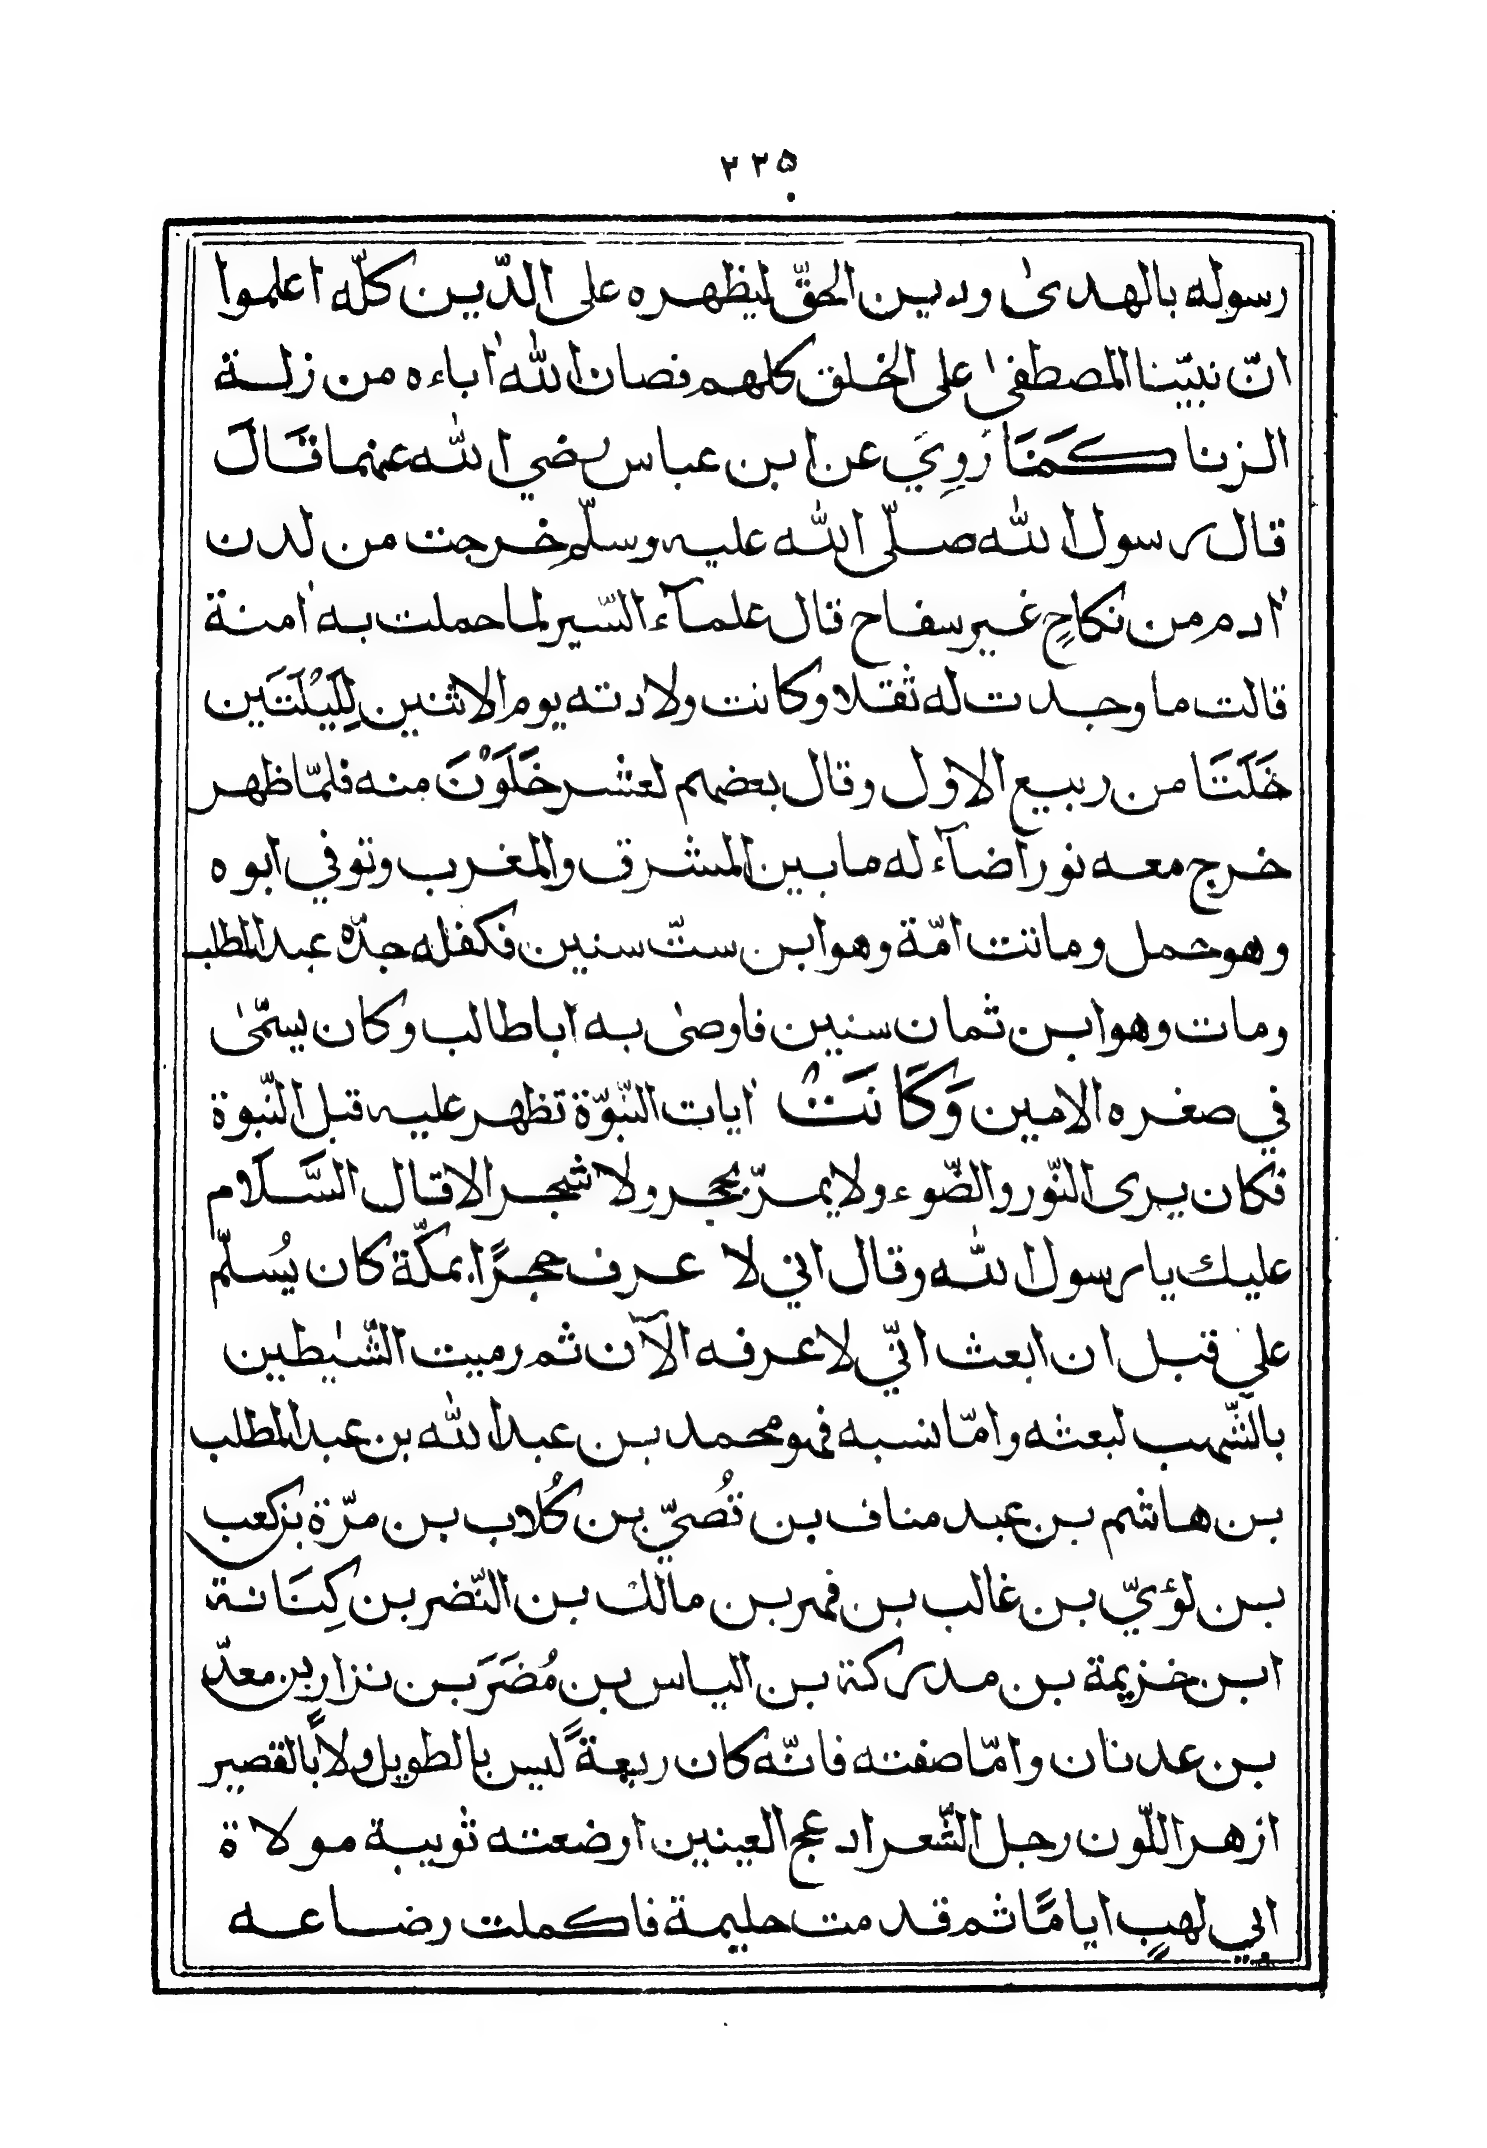 ٢٣٥
رسوله بالهدىٰ ودين الحقّ ليظهره على الدّين كلّه اعلموا
انّ نبيّنا المصطفىٰ على الخلق كلهم فصان اللّٰه اٰباءه من زلة
الزنا كَمَنَا رُوِيَ عن ابن عباس رضي اللّٰه عنهما قَالَ
قال رسول اللّٰه صلّى اللّٰه عليه وسلّم خرجت من لدن
اٰدم من نكاحٍ غير سفاح قال علمآء السّير لما حملت به اٰمنة
قالت ما وجدت له ثقلا وكانت ولادته يوم الاثنين لِلَيْلَتَين
خَلَتَا من ربيع الاوّل وقال بعضهم لعشر خَلَوْنَ منه فلمّا ظهر
خرج معه نور اضآء له ما بين المشرق والمغرب وتوفي ابوه
وهو حمل وماتت امّة وهو ابن ستّ سنين فكفله جدّه عبد المطلب
ومات وهو ابن ثمان سنين فاوصىٰ به ابا طالب وكان يسمّىٰ
في صغره الامين وَكَانَتْ اٰيات النّبوّة تظهر عليه قبل النّبوة
فكان يرى النّور والضّوء ولا يمرّ بحجر ولا شجر الا قال السَّلَام
عليك يا رسول اللّٰه وقال اني لا عرف حجرًا بمكّة كان يُسلّم
علي قبل ان ابعث انّي لاعرفه الآن ثم رميت الشّيٰطين
بالشّهب لبعثه وامّا نسبه فهو محمد بن عبد اللّٰه بن عبد المطلب
بن هاشم بن عبد مناف بن قُصيّ بن كُلاب بن مرّة بن كعب
بن لؤيّ بن غالب بن فهر بن مالك بن النّضر بن كِنَانة
ابن خزيمة بن مدركة بن الياس بن مُضَرَ بن نزار بن معدّ
بن عدنان وامّا صفته فانّه كان ربعةً ليس بالطويل ولاً بالقصير
ازهر اللّون رجل الشّعر ادعج العينين ارضعته ثويبة مولاة
ابي لهبٍ ايامًا ثم قدمت حليمة فاكملت رضاعه